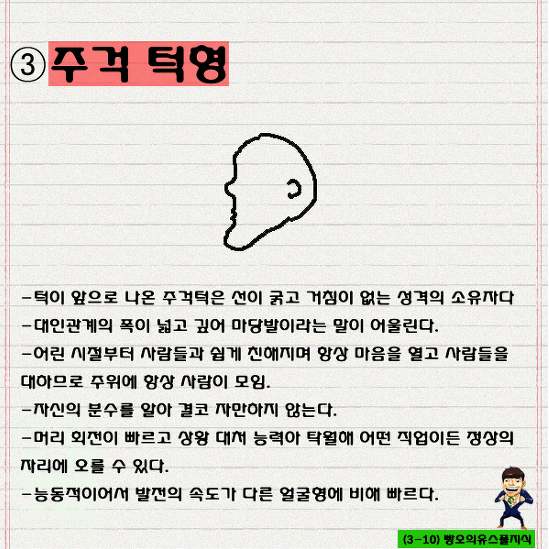 ③ 주걱 턱형
-턱이 앞으로 나온 주걱턱은 선이 굵고 거침이 없는 성격의 소유자다
-대인관계의 폭이 넓고 깊어 마당발이라는 말이 어울린다.
-어린 시절부터 사람들과 쉽게 친해지며 항상 마음을 열고 사람들을
대하므로 주위에 항상 사람이 모임.
-자신의 분수를 알아 결코 자만하지 않는다.
-머리 회전이 빠르고 상황 대처 능력아 탁월해 어떤 직업이든 정상의
자리에 오를 수 있다.
-능동적이어서 발전의 속도가 다른 얼굴형에 비해 빠르다.
(3-10) 빵오의유스풀지식